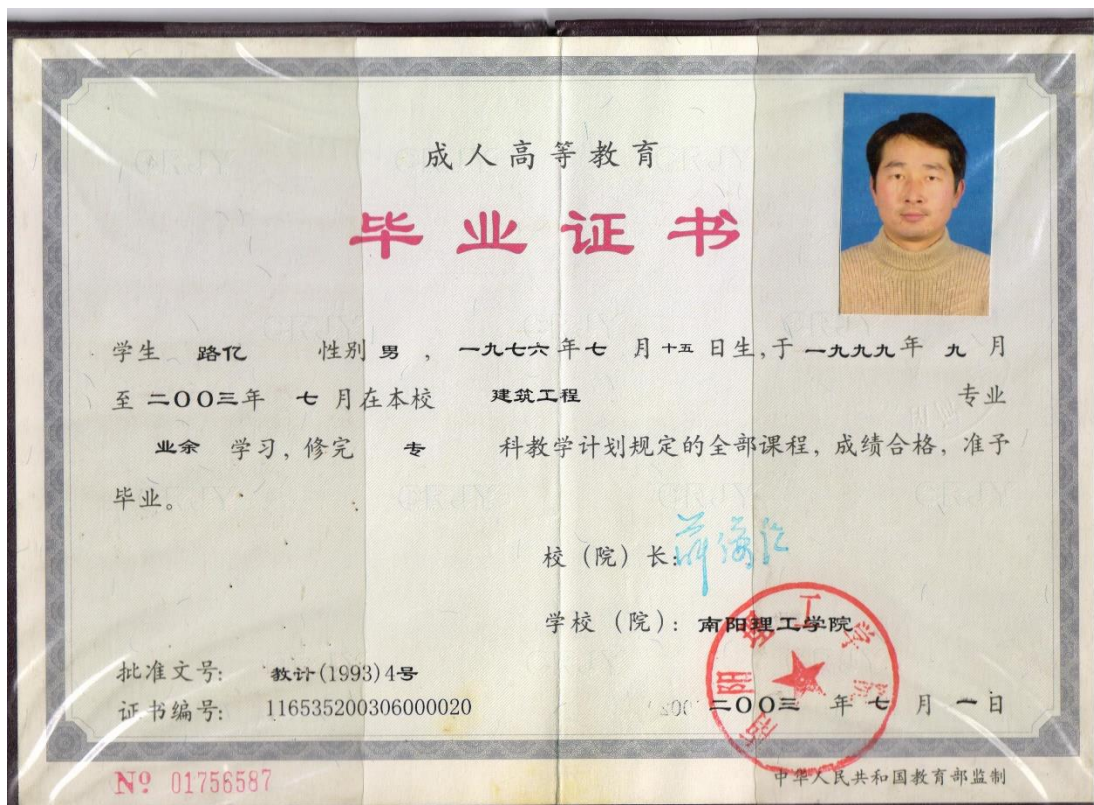 成人高等教育
毕业证书
学生 路亿 性别 男 ， 一九七六 年 七 月 十五 日生，于 一九九九 年 九 月
至 二〇〇三 年 七 月在本校 建筑工程 专业
业余 学习，修完 专 科教学计划规定的全部课程，成绩合格，准予
毕业。
校（院）长：
学校（院）：南阳理工学院
批准文号： 教计(1993)4号
证书编号： 116535200306000020
二〇〇三 年 七 月 一 日
南阳理工学院
№ 01756587
中华人民共和国教育部监制